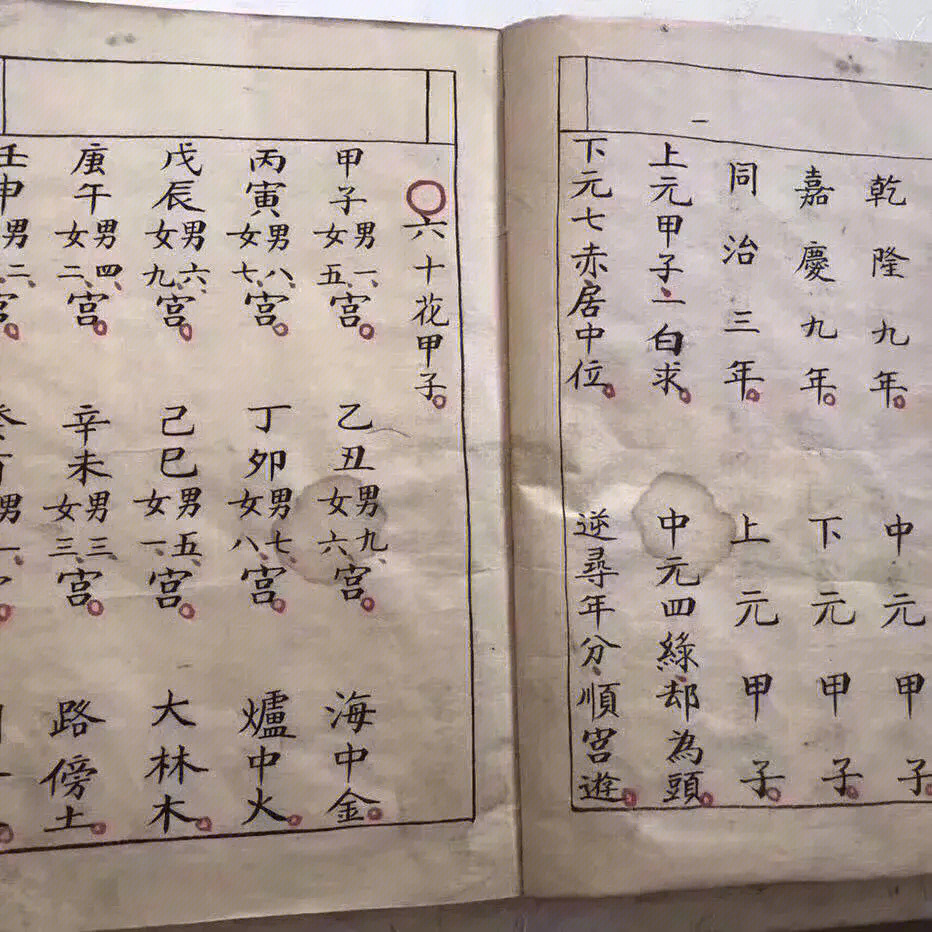 乾隆九年。中元甲子。
嘉慶九年。下元甲子。
同治三年。上元甲子。
上元甲子、一白求。中元四綠、却為頭。
下元七赤居中位。逆尋年分、順宮遊。
○六十花甲子。
甲子男一、女五、宮。乙丑男九、女六、宮。海中金。
丙寅男八、女七、宮。丁夘男七、女八、宮。爐中火。
戊辰男六、女九、宮。己巳男五、女一、宮。大林木。
庚午男四、女二、宮。辛未男三、女三、宮。路傍土。
壬申男二、宮。男一、